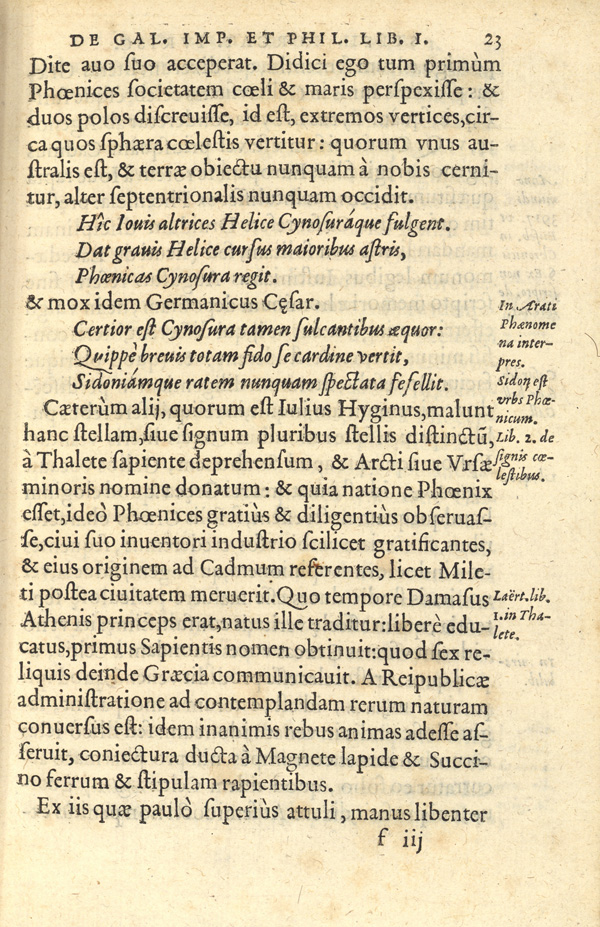 DE GAL. IMP. ET PHIL. LIB. I. 23
Dite auo ſuo acceperat. Didici ego tum primùm
Phœnices ſocietatem cœli & maris perſpexiſſe: &
duos polos diſcreuiſſe, id eſt, extremos vertices, cir-
ca quos ſphæra cœleſtis vertitur: quorum vnus au-
ſtralis eſt, & terræ obiectu nunquam à nobis cerni-
tur, alter ſeptentrionalis nunquam occidit.
Hîc Iouis altrices Helice Cynoſuráque fulgent.
Dat grauis Helice curſus maioribus aſtris,
Phœnicas Cynoſura regit.
& mox idem Germanicus Cęſar.
Certior eſt Cynoſura tamen ſulcantibus æquor:
Quippè breuis totam fido ſe cardine vertit,
Sidoniámque ratem nunquam ſpectata fefellit.
Cæterùm alij, quorum eſt Iulius Hyginus, malunt
hanc ſtellam, ſiue ſignum pluribus ſtellis diſtinctū,
à Thalete ſapiente deprehenſum, & Arcti ſiue Vrſæ
minoris nomine donatum: & quia natione Phœnix
eſſet, ideò Phœnices gratiùs & diligentiùs obſeruaſ-
ſe, ciui ſuo inuentori induſtrio ſcilicet gratificantes,
& eius originem ad Cadmum referentes, licet Mile-
ti poſtea ciuitatem meruerit. Quo tempore Damaſus
Athenis princeps erat, natus ille traditur: liberè edu-
catus, primus Sapientis nomen obtinuit: quod ſex re-
liquis deinde Græcia communicauit. A Reipublicæ
adminiſtratione ad contemplandam rerum naturam
conuerſus eſt: idem inanimis rebus animas adeſſe aſ-
ſeruit, coniectura ducta à Magnete lapide & Succi-
no ferrum & ſtipulam rapientibus.
Ex iis quæ paulò ſuperiùs attuli, manus libenter
f iij
In Arati
Phænome
na inter-
pres.
Sidon eſt
vrbs Phœ-
nicum.
Lib. 2. de
ſignis cœ-
leſtibus.
Laërt. lib.
1. in Tha-
lete.